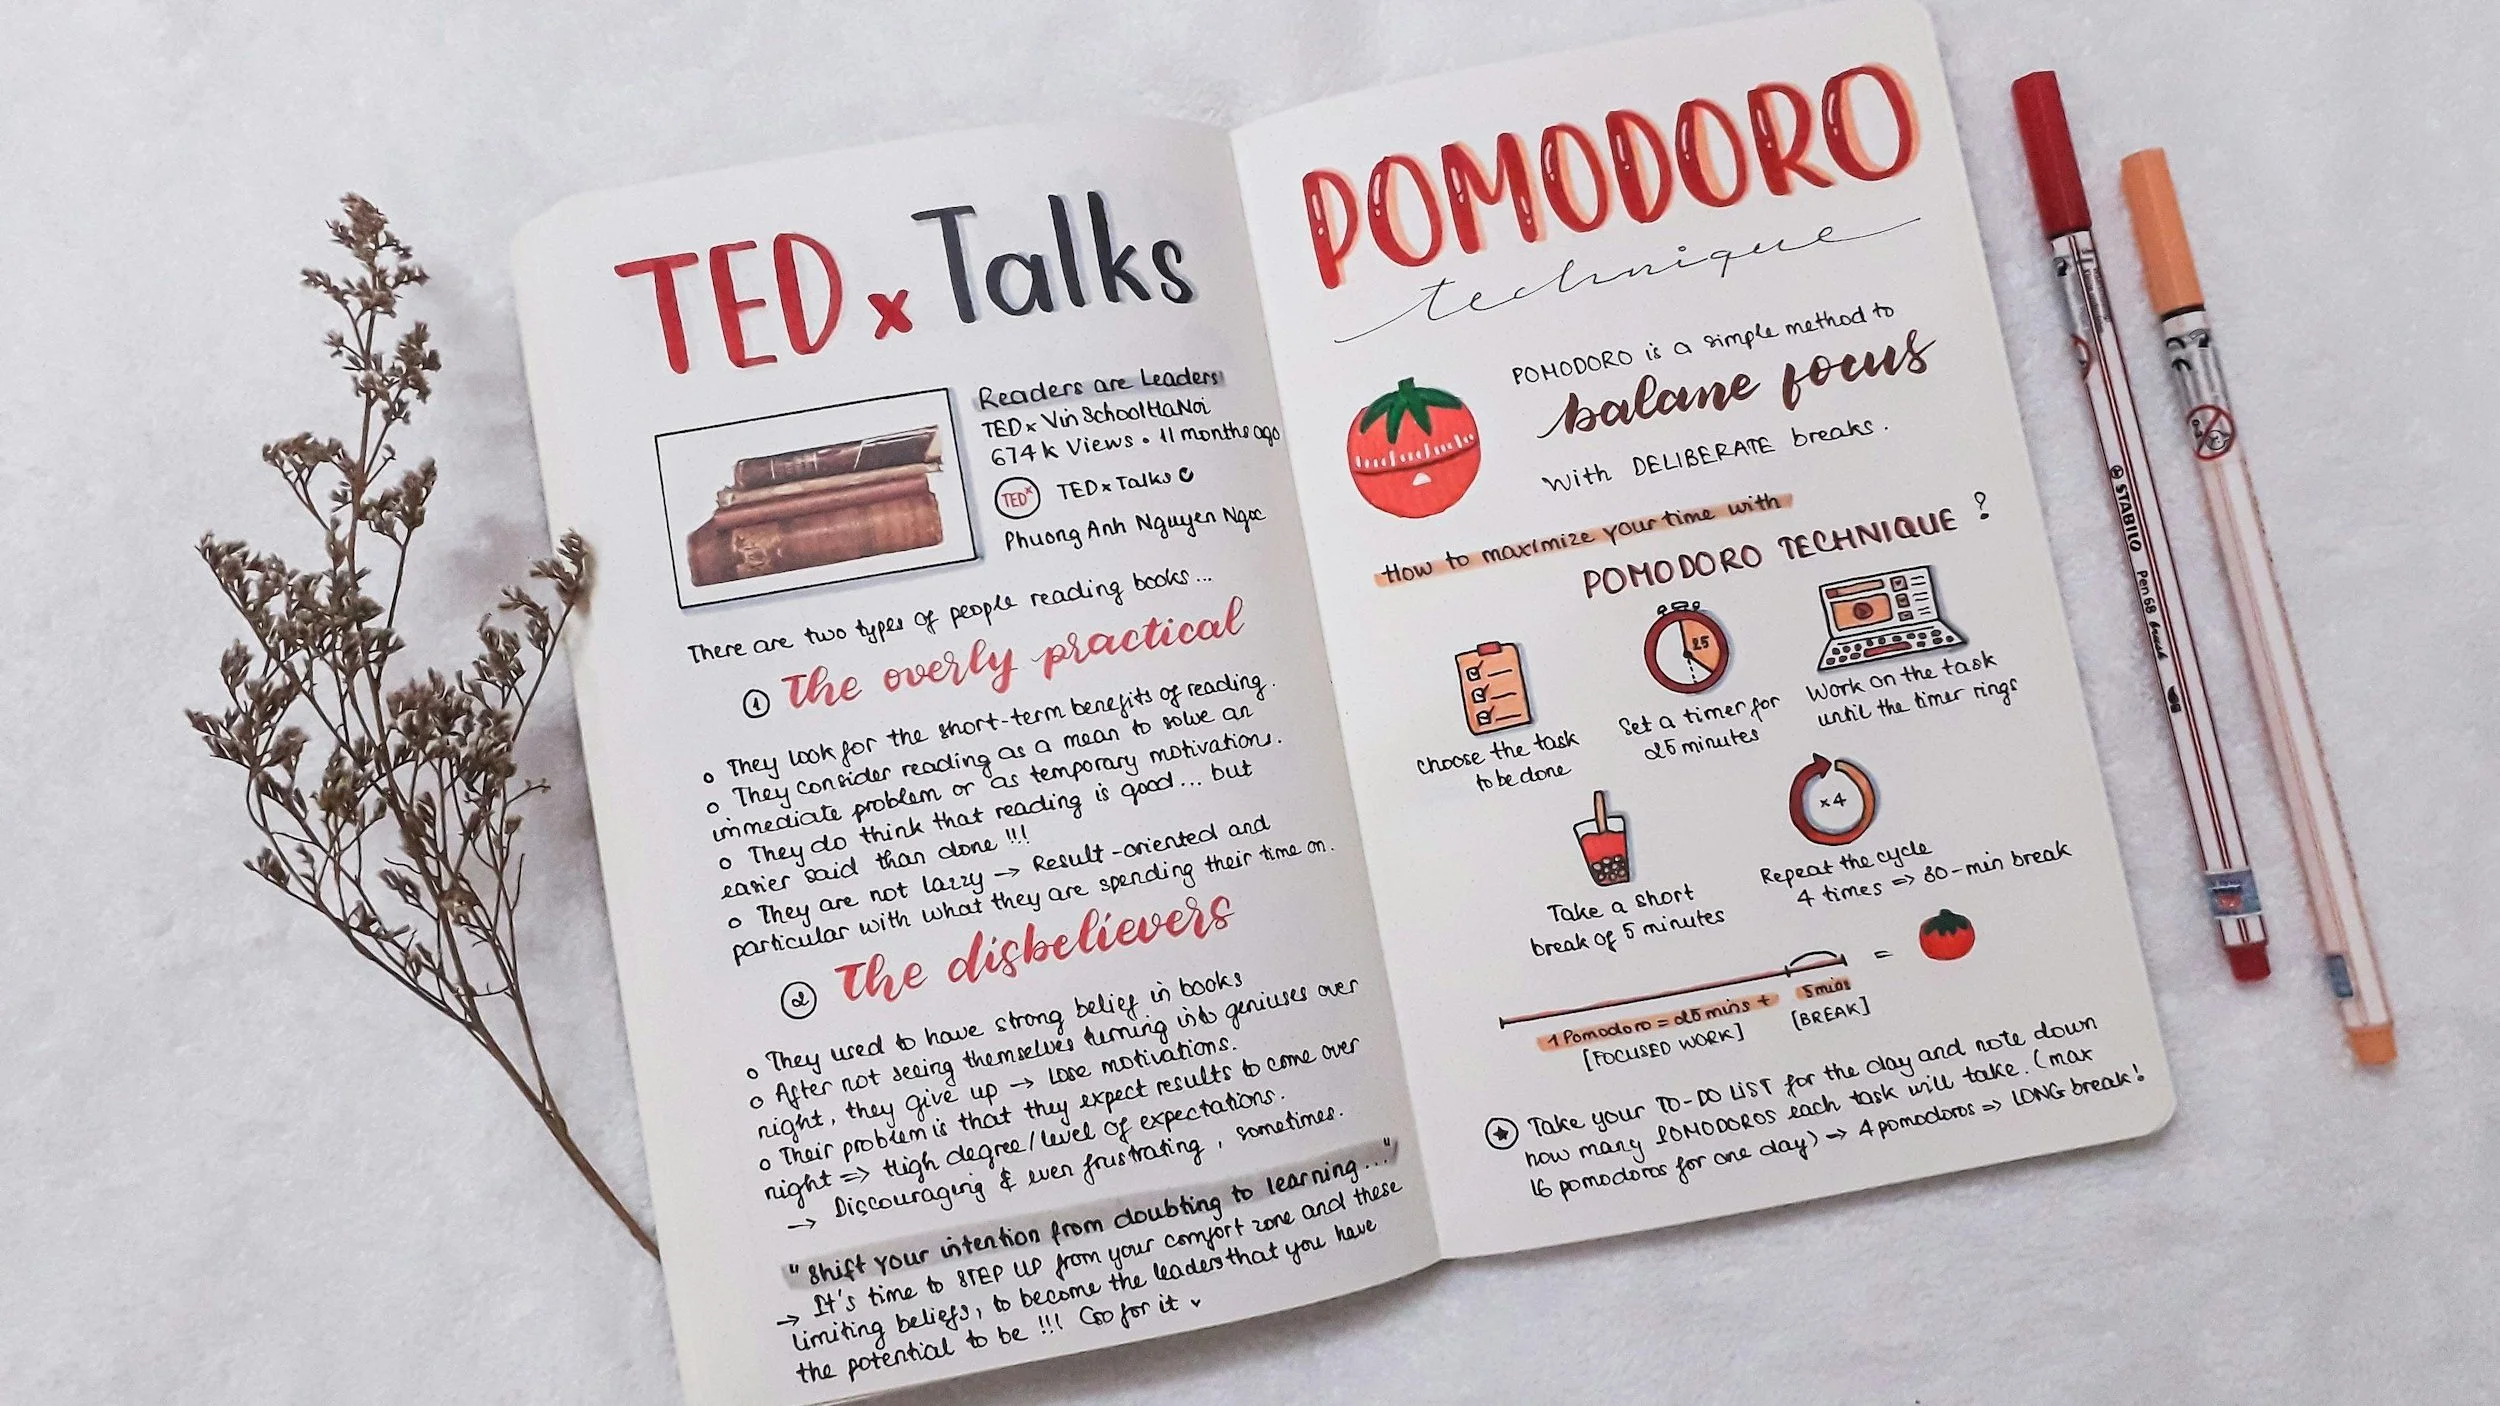 TED x Talks
Readers are Leaders
TEDx VinSchoolHaNoi
674k Views • 11 months ago
TEDx
TEDx Talks
Phuong Anh Nguyen Ngoc
There are two types of people reading books...
1 The overly practical
o They look for the short-term benefits of reading.
o They consider reading as a mean to solve an
immediate problem or as temporary motivations.
o They do think that reading is good... but
easier said than done !!!
o They are not lazzy → Result-oriented and
particular with what they are spending their time on.
2 The disbelievers
o They used to have strong belief in books
o After not seeing themselves turning into geniuses over
night, they give up → Lose motivations.
o Their problem is that they expect results to come over
night => High degree/level of expectations.
→ Discouraging & even frustrating, sometimes.
"Shift your intention from doubting to learning..."
→ It's time to STEP UP from your comfort zone and these
limiting beliefs, to become the leaders that you have
the potential to be !!! Go for it
POMODORO
technique
POMODORO is a simple method to
balane focus
with DELIBERATE breaks.
How to maximize your time with
POMODORO TECHNIQUE ?
Choose the task
to be done
25
Set a timer for
25 minutes
Work on the task
until the timer rings
Take a short
break of 5 minutes
x4
Repeat the cycle
4 times => 30-min break
1 Pomodoro = 25 mins + 5 mins =
[FOCUSED WORK] [BREAK]
Take your TO-DO LIST for the day and note down
how many POMODOROS each task will take. (max
16 pomodoros for one day) → 4 pomodoros => LONG break!
STABILO Pen 68 brush